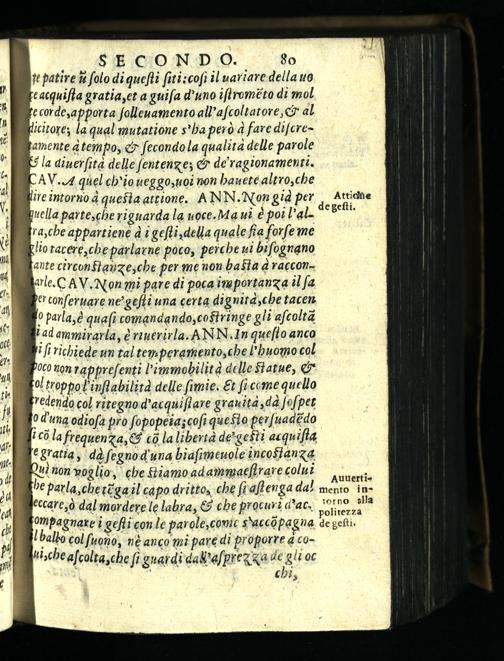 SECONDO. 80
re patire ũ solo di questi siti: cosi il uariare della uo
ce acquista gratia, et a guisa d'uno istromẽto di mol
te corde, apporta solleuamento all'ascoltatore, & al
dicitore; la qual mutatione s'ha però à fare discre-
tamente à tempo, & secondo la qualità delle parole
& la diuersità delle sentenze; & de'ragionamenti.
CAV. A quel ch'io ueggo, uoi non hauete altro, che
dire intorno à questa attione. ANN. Non già per
quella parte, che riguarda la uoce. Ma ui è poi l'al-
tra, che appartiene à i gesti, della quale fia forse me
glio tacere, che parlarne poco, perche ui bisognano
tante circonstanze, che per me non basta à raccon-
tarle. CAV. Non mi pare di poca importanza il sa
per conseruare ne'gesti una certa dignità, che tacen
do parla, è quasi comandando, costringe gli ascoltã
ti ad ammirarla, è riuerirla. ANN. In questo anco
ui si richiede un tal temperamento, che l'huomo col
poco non rappresenti l'immobilità delle statue, &
col troppo l'instabilità delle simie. Et si come quello
credendo col ritegno d'acquistare grauità, dà sospet
to d'una odiosa prosopopeia; cosi questo persuadẽdo
si cõ la frequenza, & cõ la libertà de'gesti acquista
re gratia, dà segno d'una biasimeuole inconstanza
Qui non voglio, che stiamo ad ammaestrare colui
che parla, che tẽga il capo dritto, che si astenga dal
leccare, ò dal mordere le labra, & che procuri d'ac-
compagnare i gesti con le parole, come s'accõpagna
il ballo col suono, nè anco mi pare di proporre à co-
lui, che ascolta, che si guardi dall'asprezza de gli oc
chi,
Attione
de gesti.
Auuerti-
mento in-
torno alla
politezza
de gesti.